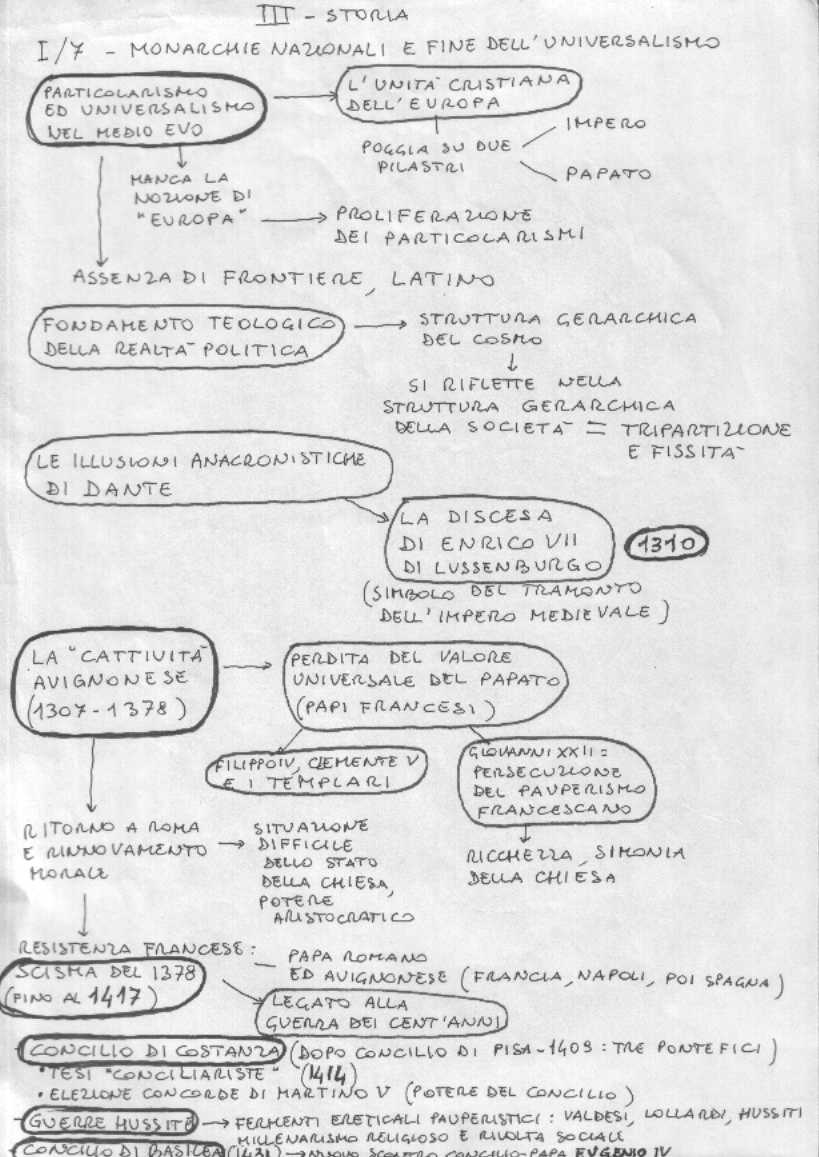 III - STORIA
I/7 - MONARCHIE NAZIONALI E FINE DELL'UNIVERSALISMO
PARTICOLARISMO
ED UNIVERSALISMO
NEL MEDIO EVO
L'UNITÀ CRISTIANA
DELL'EUROPA
POGGIA SU DUE
PILASTRI
IMPERO
PAPATO
MANCA LA
NOZIONE DI
"EUROPA"
PROLIFERAZIONE
DEI PARTICOLARISMI
ASSENZA DI FRONTIERE, LATINO
FONDAMENTO TEOLOGICO
DELLA REALTÀ POLITICA
STRUTTURA GERARCHICA
DEL COSMO
SI RIFLETTE NELLA
STRUTTURA GERARCHICA
DELLA SOCIETÀ = TRIPARTIZIONE
E FISSITÀ
LE ILLUSIONI ANACRONISTICHE
DI DANTE
LA DISCESA
DI ENRICO VII
DI LUSSENBURGO
1310
(SIMBOLO DEL TRAMONTO
DELL'IMPERO MEDIEVALE)
LA "CATTIVITÀ
AVIGNONESE
(1307-1378)
PERDITA DEL VALORE
UNIVERSALE DEL PAPATO
(PAPI FRANCESI)
FILIPPO IV, CLEMENTE V
E I TEMPLARI
GIOVANNI XXII:
PERSECUZIONE
DEL PAUPERISMO
FRANCESCANO
RICCHEZZA, SIMONIA
DELLA CHIESA
RITORNO A ROMA
E RINNOVAMENTO
MORALE
SITUAZIONE
DIFFICILE
DELLO STATO
DELLA CHIESA,
POTERE
ARISTOCRATICO
RESISTENZA FRANCESE:
SCISMA DEL 1378
(FINO AL 1417)
PAPA ROMANO
ED AVIGNONESE (FRANCIA, NAPOLI, POI SPAGNA)
LEGATO ALLA
GUERRA DEI CENT'ANNI
- CONCILIO DI COSTANZA (DOPO CONCILIO DI PISA-1409: TRE PONTEFICI)
• TESI "CONCILIARISTE" (1414)
• ELEZIONE CONCORDE DI MARTINO V (POTERE DEL CONCILIO)
- GUERRE HUSSITE → FERMENTI ERETICALI PAUPERISTICI: VALDESI, LOLLARDI, HUSSITI
MILLENARISMO RELIGIOSO E RIVOLTA SOCIALE
- CONCILIO DI BASILEA (1431) → NUOVO SCONTRO CONCILIO-PAPA EUGENIO IV